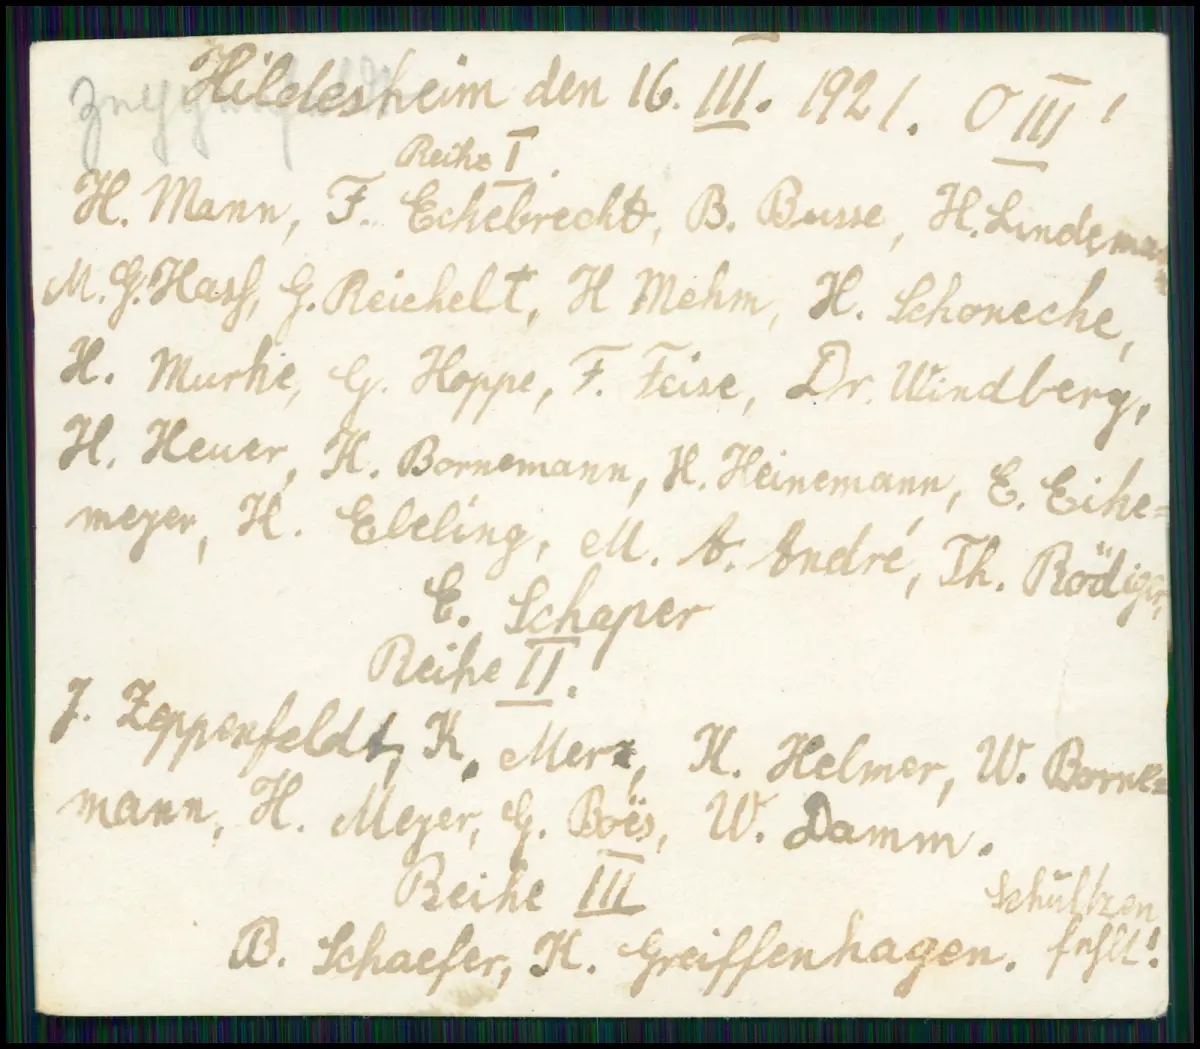 Hildesheim den 16. III. 1921. O III!
Reihe I.
H. Mann, F. Eckebrecht, B. Busse, H. Lindeman
M. G. Hasf, G. Reichelt, H Mehm, H. Schonecke,
H. Murke, G. Hoppe, F. Feise, Dr. Windberg,
H. Heuer, K. Bornemann, H. Heinemann, E. Eike=
meyer, H. Ebeling, M. A. André, Th. Rödiger,
E. Schaper
Reihe II.
J. Zeppenfeldt, K. Merz, K. Helmer, W. Borne=
mann, H. Meyer, G. Boës, W. Damm.
Reihe III
B. Schaefer, K. Greiffenhagen.
Schültzen
fehlt!